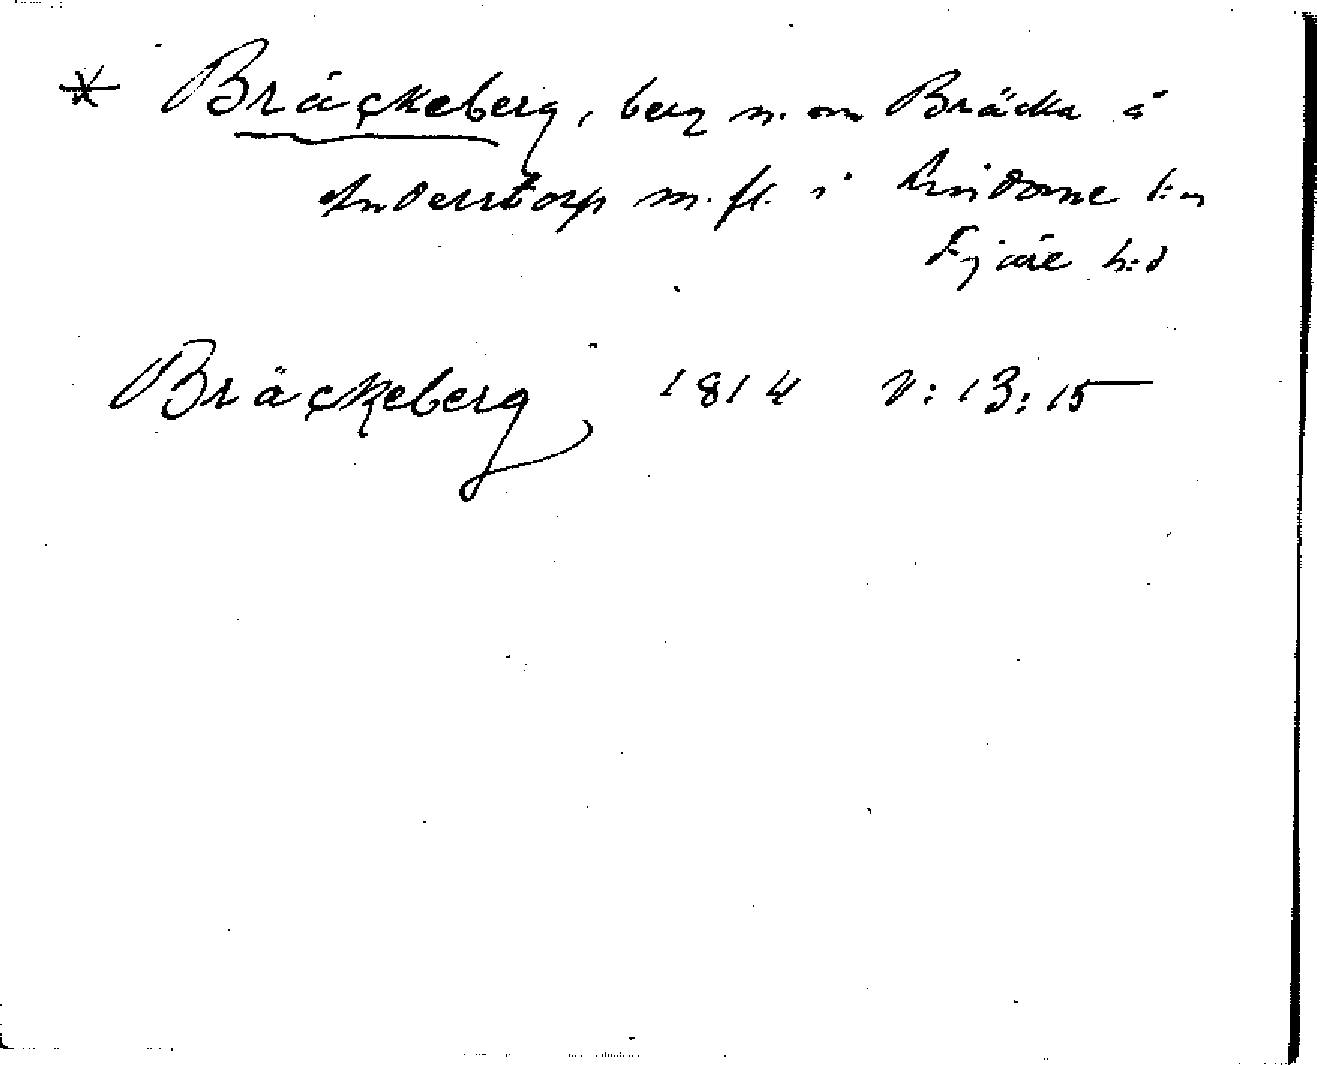 * Bräckeberg, berg n. om Bräcka å
Anderstorp m.fl. i Lindome sn
Fjäre h:d
Bräckeberg 1814 V:13:15